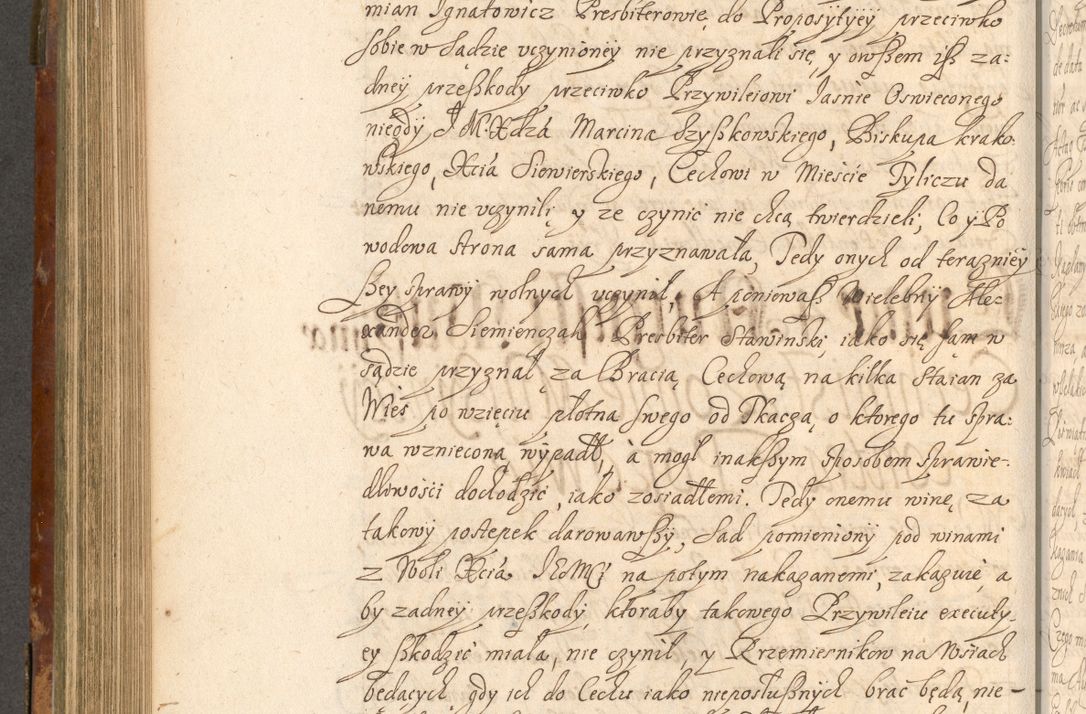 mian Ignatowicz Presbiterowie do Proposytyey przeciwko
sobie w sadzie vczynioney nie przyznali się, y owszem iß za:
dney przeßkody przeciwko Przywileiowi Iasnie Oswieconego
niegdy J M. Xdzá Marcina Szyßkowskiego, Biskupa krako:
wskiego, Xcia Siewierskiego, Cechowi w Mieście Tyliczu da
nemu nie vczynili, y ze czynić nie chcą twierdzieli; Co y Po
wodowa strona sama przyznawała, Tedy onych od terazniey
ßey sprawy wolnych uczynił, A poniewaß Wielebny Ale:
xander Siemienczak Presbiter Stawinski, iako się sam w
sądzie przyznał, za Bracią Cechową na kilka Staian za
Wieś po wzięciu płotna swego od Tkacza, o ktorego tu spra:
wa wzniecona wypadł, à mogł inakßym sposobem sprawie-
dliwości dochodzić, iako zosiadłemi. Tedy onemu winę za
takowy postepek darowawßy, Sad pomieniony pod winami
z Woli Xcia JEoMCi na potym nakazanemi, zakazuie, a
by zadney przeßkody, ktoraby takowego Przywileiu executy-
ey ßkodzić miała, nie czynił, y Rzemiesnikow na Wsiach
będących, gdy ich do Cechu iako nieposłußnych brać będą, nie-